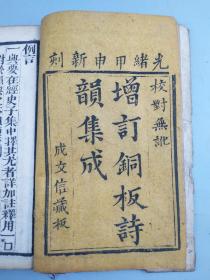 光緒甲申新刻
校對無訛
增訂銅板詩
韻集成
成文信藏板
例言
一典要在經史子集中擇其尤者詳加註釋用囗